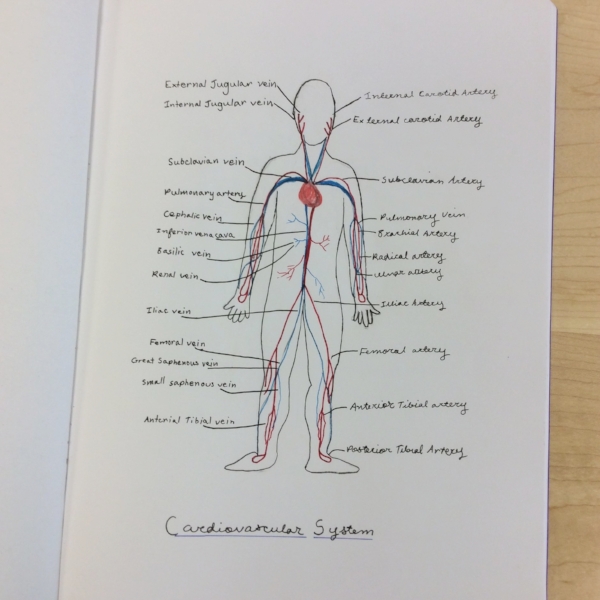 External Jugular vein
Internal Jugular vein
Subclavian vein
Pulmonary artery
Cephalic vein
Inferior vena cava
Basilic vein
Renal vein
Iliac vein
Femoral vein
Great Saphenous vein
Small saphenous vein
Anterial Tibial vein
Internal Carotid Artery
External carotid Artery
Subclavian Artery
Pulmonary Vein
Brachial Artery
Radical artery
ulnar artery
Iliac Artery
Femoral artery
Anterior Tibial artery
Posterior Tibial Artery
Cardiovascular System